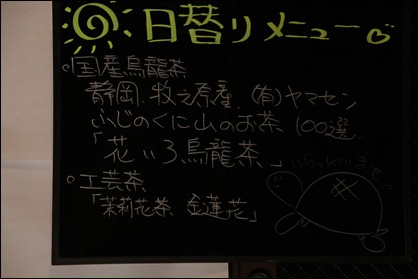 日替りメニュー
○国産烏龍茶
静岡.牧之原産.(有)ヤマセン
ふじのくに山のお茶100選.
「花いろ烏龍茶」
いらっしいませ
○工芸茶
「茉莉花茶 金蓮花」